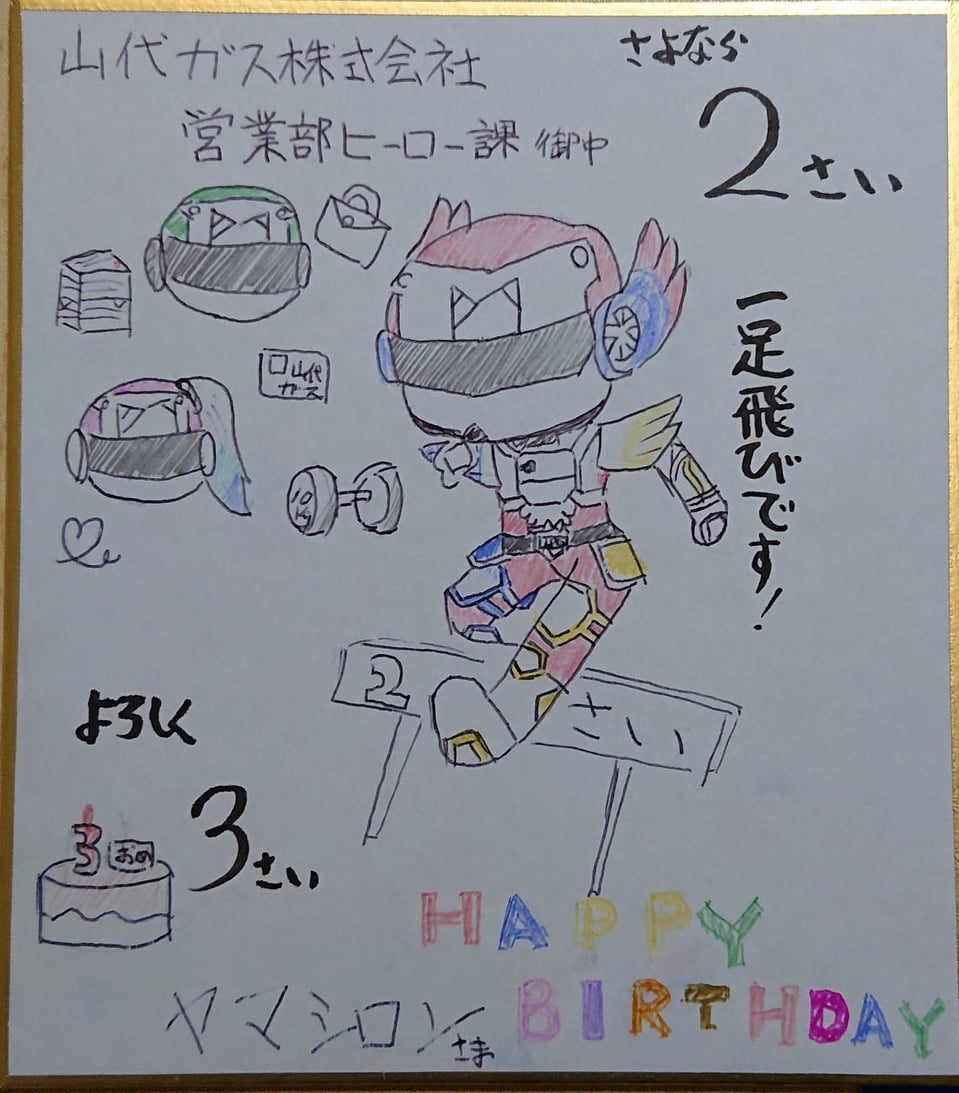 山代ガス株式会社
営業部ヒーロー課 御中
さよなら
2さい
一足飛びです!
山代
ガス
10
2さい
よろしく
3
おめ
3さい
HAPPY
BIRTHDAY
ヤマシロンさま